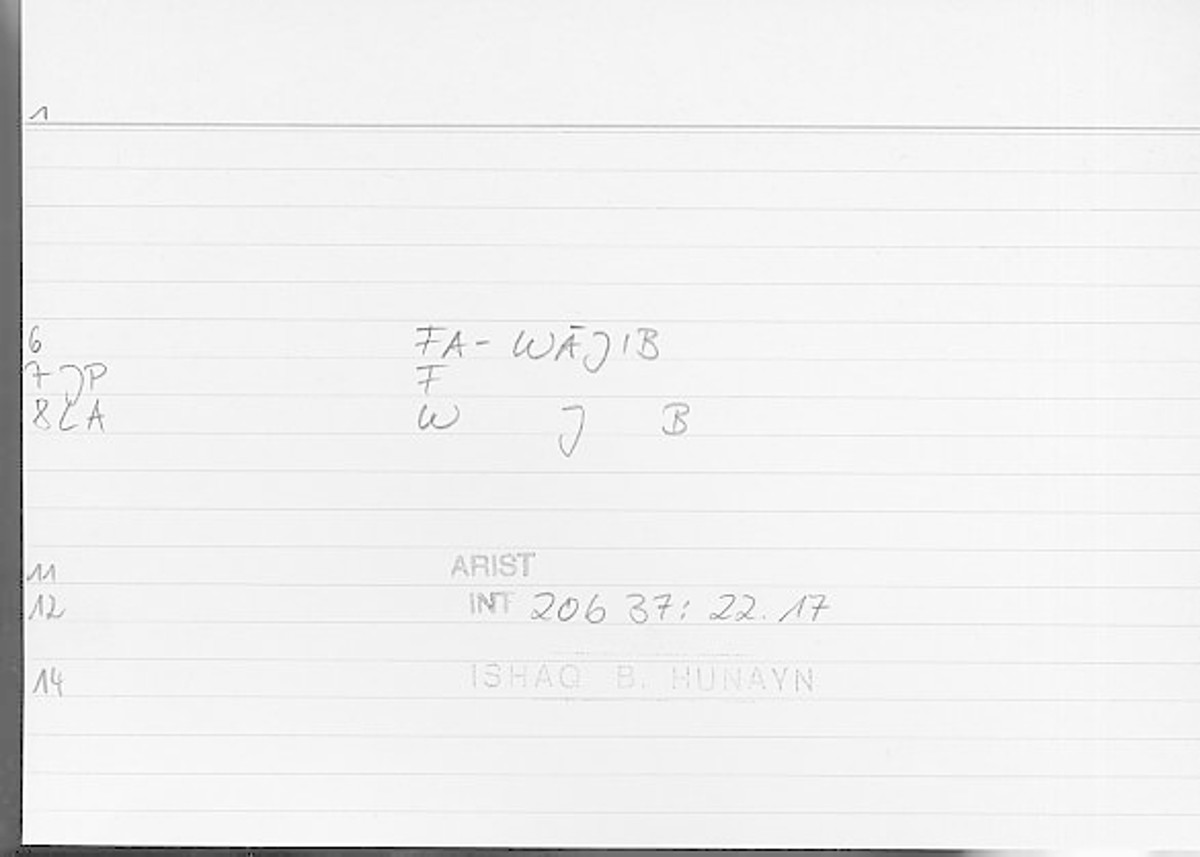 1
6 FA- WĀJIB
7 JP F
8 LA W J B
11 ARIST
12 INT 206 37: 22. 17
14 ISHAQ B. HUNAYN